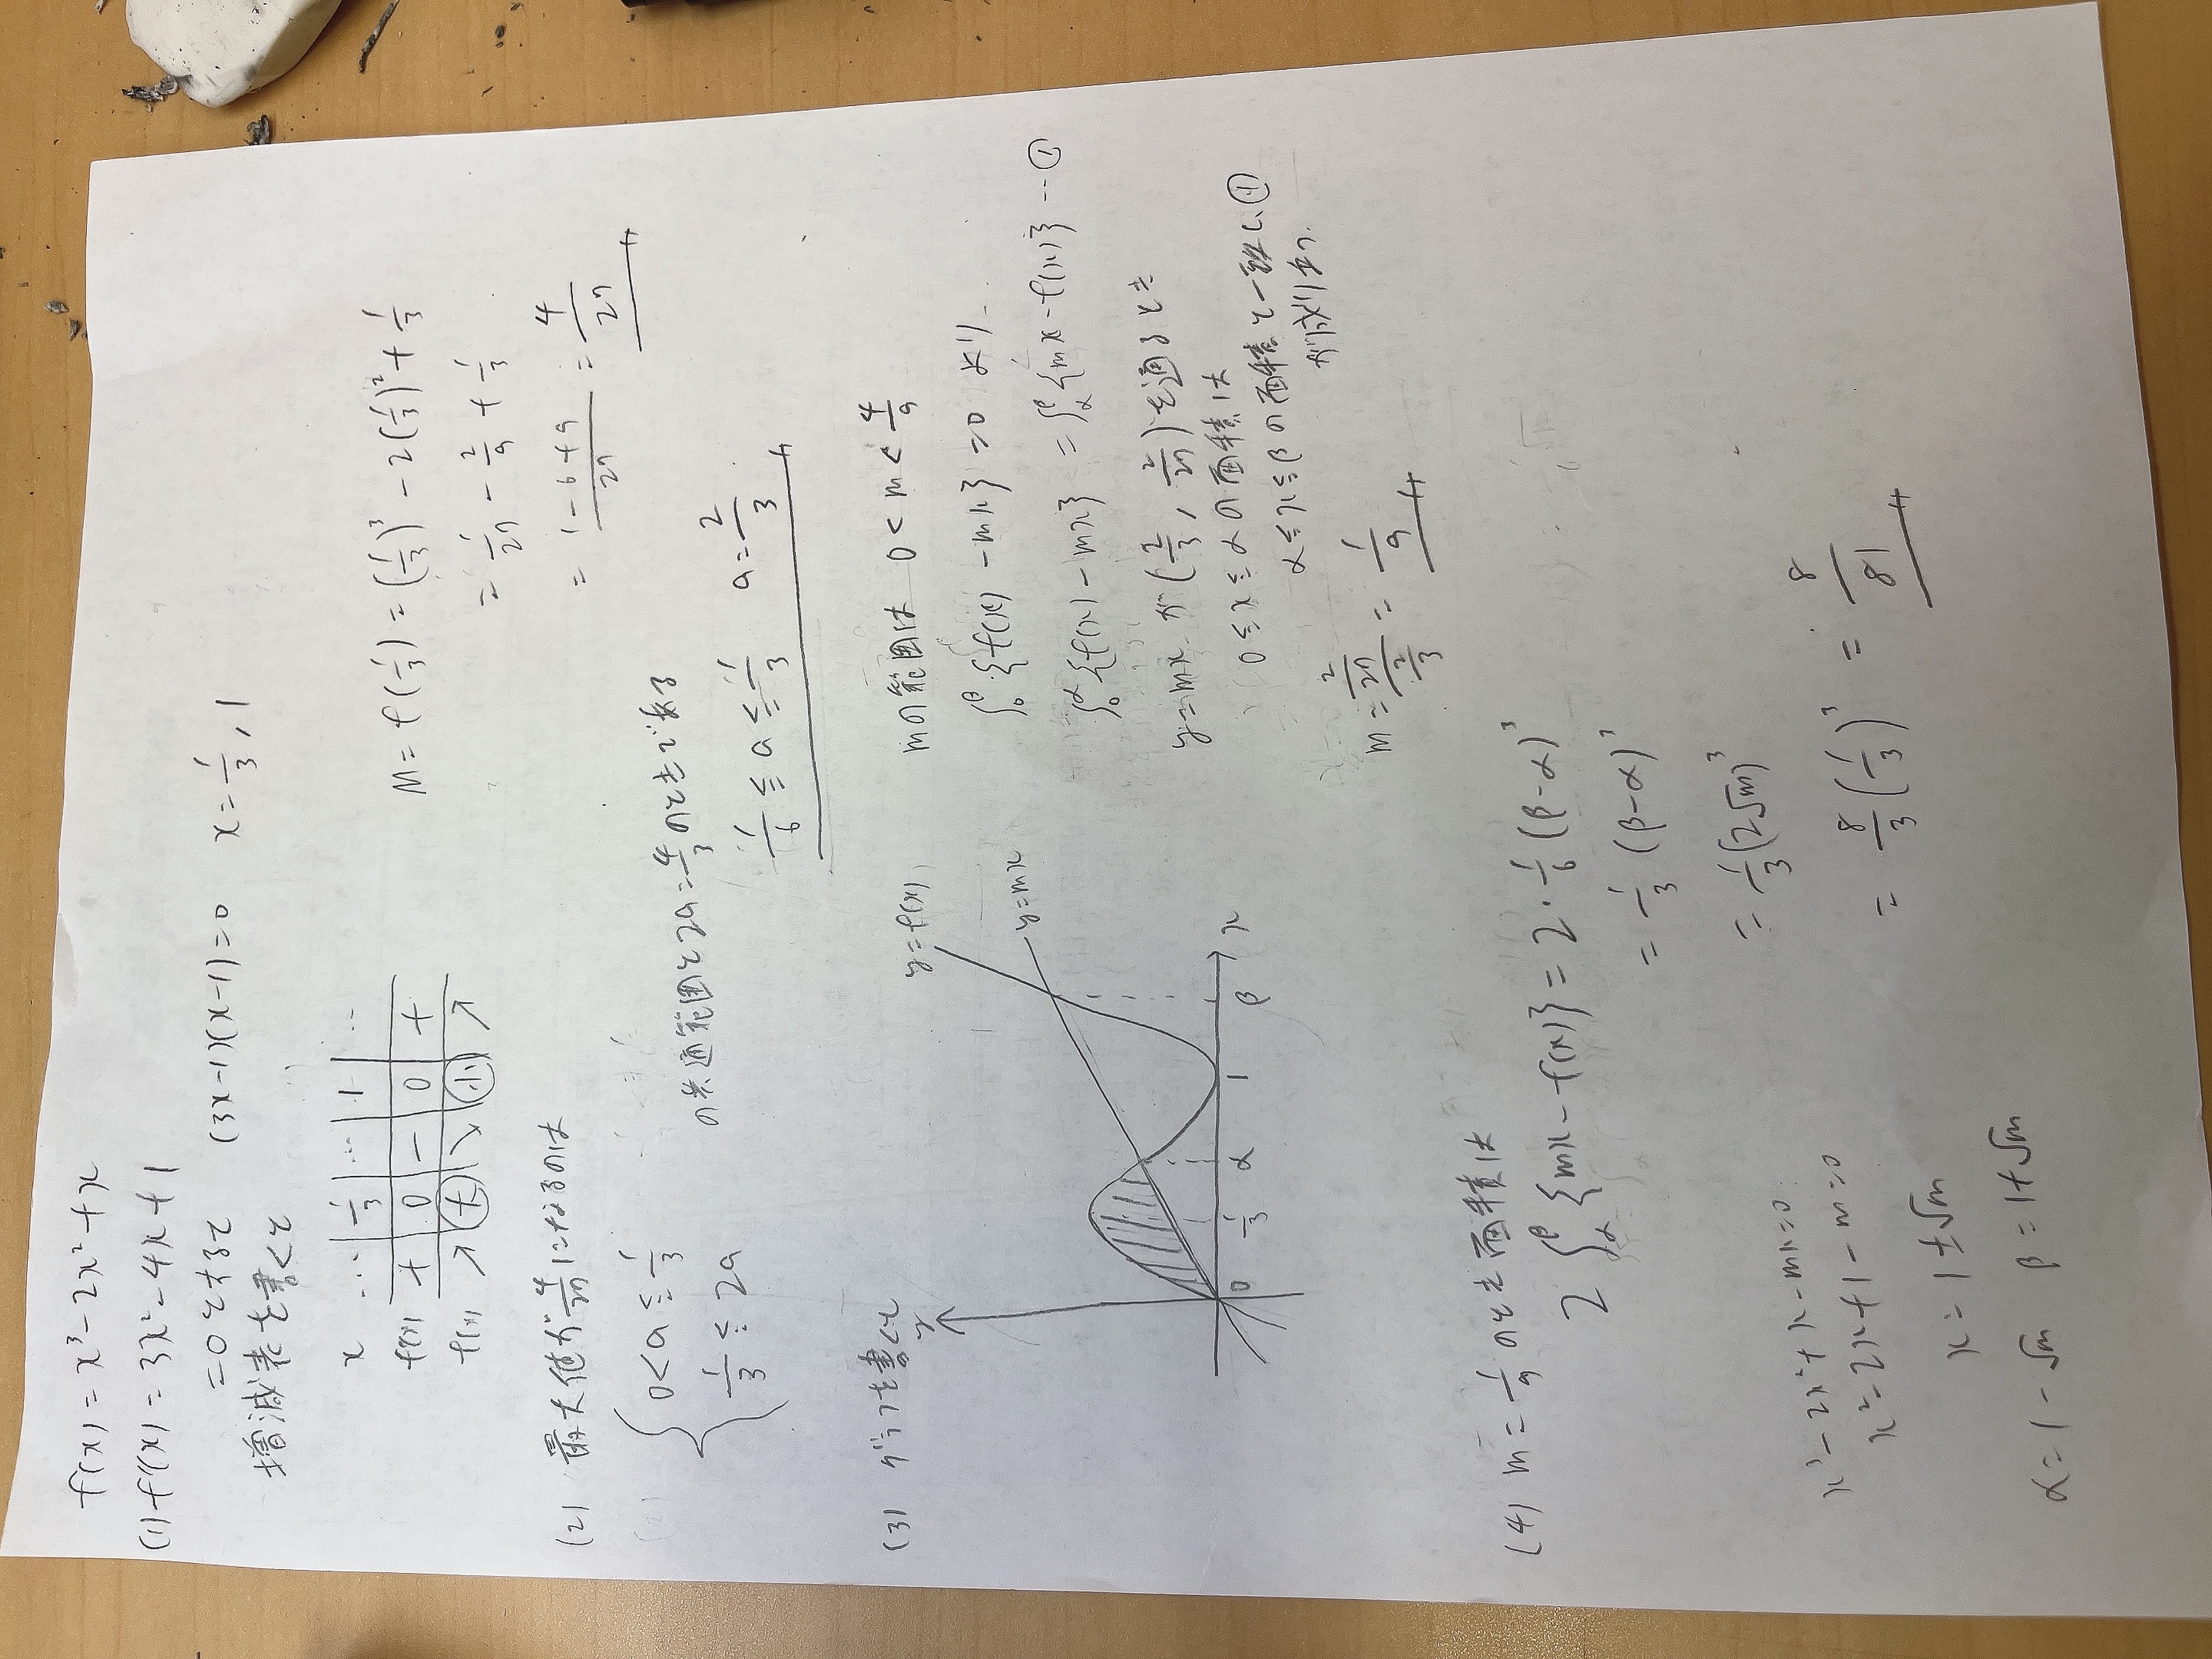 f(x) = x³ - 2x² + x
(1) f'(x) = 3x² - 4x + 1
= 0 とすると (3x-1)(x-1) = 0 x = 1/3, 1
増減表を書くと
x … 1/3 … 1 …
f'(x) + 0 - 0 +
f(x) ↗ 大 ↘ 小 ↗
M = f(1/3) = (1/3)³ - 2(1/3)² + 1/3
= 1/27 - 2/9 + 1/3
= (1-6+9)/27 = 4/27
(2) 最大値が 4/27 になるのは
{ 0 < a ≦ 1/3
1/3 ≦ 2a
の共通範囲と 2a = 4/3 のときである
1/6 ≦ a ≦ 1/3 a = 2/3
(3) グラフを書くと
y
y = f(x)
y = mx
0 1/3 α 1 β x
mの範囲は 0 < m < 4/9
∫₀^β {f(x) - mx} = 0 より
∫₀^α {f(x) - mx} = ∫_α^β {mx - f(x)} … ①
y = mx が (2/3, 2/27) を通るとき
0 ≦ x ≦ α の面積は
α ≦ x ≦ β の面積と一致し①
が成り立つ.
m = (2/27)/(2/3) = 1/9
(4) m = 1/9 のとき面積は
2∫_α^β {mx - f(x)} = 2・1/6 (β-α)³
= 1/3 (β-α)³
= 1/3 (2√m)³
= 8/3 (1/3)³ = 8/81
x³ - 2x² + x - mx = 0
x² - 2x + 1 - m = 0
x = 1 ± √m
α = 1 - √m β = 1 + √m